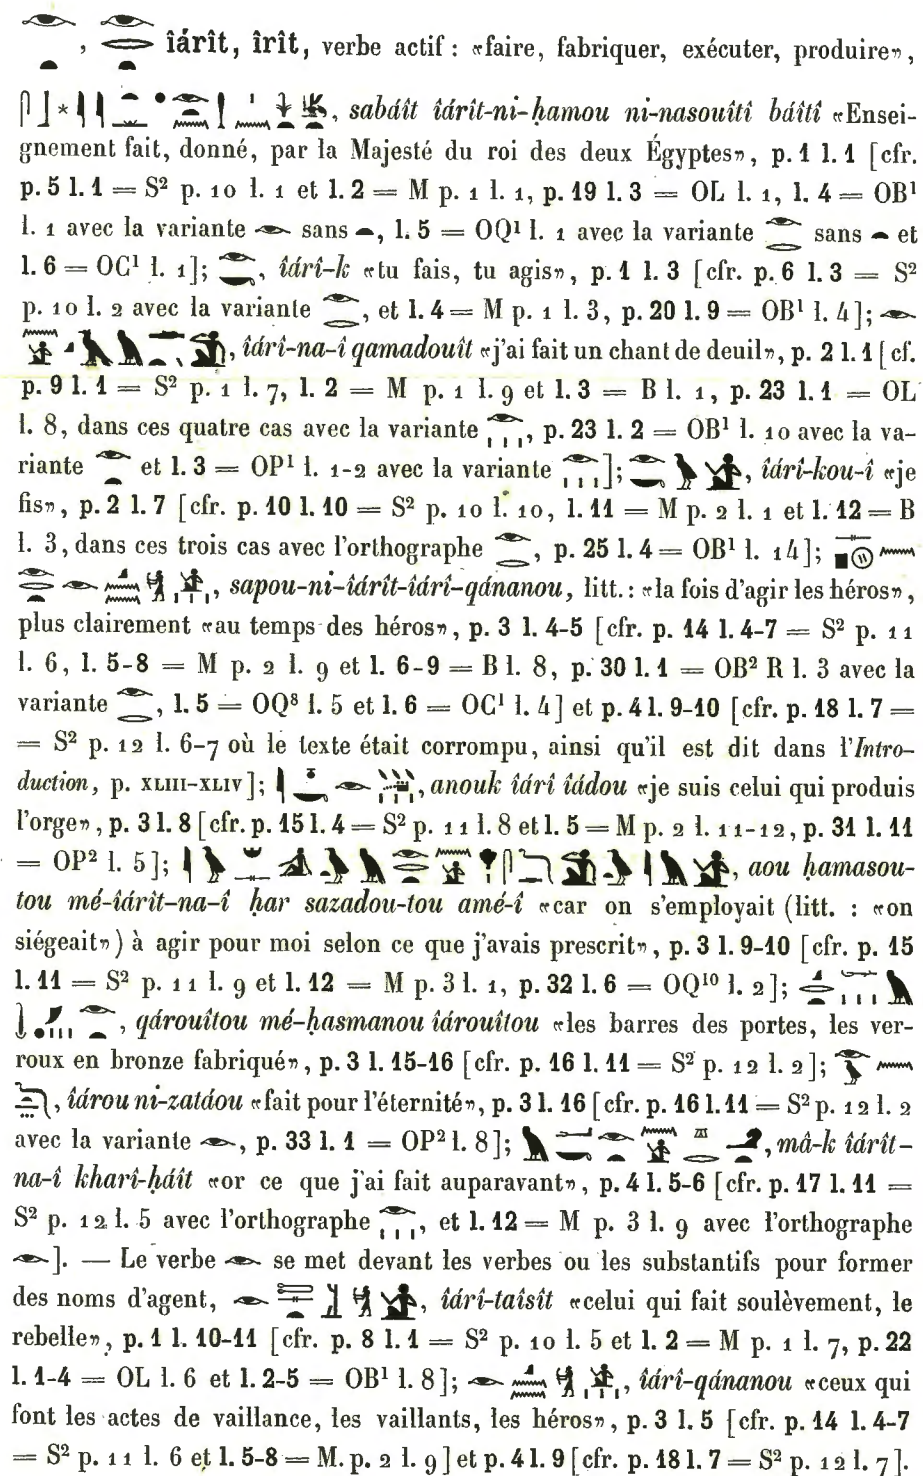 , îárît, îrît, verbe actif : «faire, fabriquer, exécuter, produire»,
, sabáît îárît-ni-ḥamou ni-nasouîti báîti «Ensei-
gnement fait, donné, par la Majesté du roi des deux Égyptes», p. 1 l. 1 [cfr.
p. 5 l. 1 = S² p. 10 l. 1 et l. 2 = M p. 1 l. 1, p. 19 l. 3 = OL l. 1, l. 4 = OB¹
l. 1 avec la variante sans , l. 5 = OQ¹ l. 1 avec la variante sans et
l. 6 = OC¹ l. 1]; , îárî-k «tu fais, tu agis», p. 1 l. 3 [cfr. p. 6 l. 3 = S²
p. 10 l. 2 avec la variante , et l. 4 = M p. 1 l. 3, p. 20 l. 9 = OB¹ l. 4];
, îárî-na-î qamadouît «j'ai fait un chant de deuil», p. 2 l. 1 [cf.
p. 9 l. 1 = S² p. 1 l. 7, l. 2 = M p. 1 l. 9 et l. 3 = B l. 1, p. 23 l. 1 = OL
l. 8, dans ces quatre cas avec la variante , p. 23 l. 2 = OB¹ l. 10 avec la va-
riante et l. 3 = OP¹ l. 1-2 avec la variante ]; , îárî-kou-î «je
fis», p. 2 l. 7 [cfr. p. 10 l. 10 = S² p. 10 l. 10, l. 11 = M p. 2 l. 1 et l. 12 = B
l. 3, dans ces trois cas avec l'orthographe , p. 25 l. 4 = OB¹ l. 14];
, sapou-ni-îárît-îárî-qánanou, litt.: «la fois d'agir les héros»,
plus clairement «au temps des héros», p. 3 l. 4-5 [cfr. p. 14 l. 4-7 = S² p. 11
l. 6, l. 5-8 = M p. 2 l. 9 et l. 6-9 = B l. 8, p. 30 l. 1 = OB² R l. 3 avec la
variante , l. 5 = OQ⁸ l. 5 et l. 6 = OC¹ l. 4] et p. 4 l. 9-10 [cfr. p. 18 l. 7 =
= S² p. 12 l. 6-7 où le texte était corrompu, ainsi qu'il est dit dans l'Intro-
duction, p. XLIII-XLIV]; , anouk îárî îádou «je suis celui qui produis
l'orge», p. 3 l. 8 [cfr. p. 15 l. 4 = S² p. 11 l. 8 et l. 5 = M p. 2 l. 11-12, p. 31 l. 11
= OP² l. 5]; , aou ḥamasou-
tou mé-îárît-na-î ḥar sazadou-tou amé-î «car on s'employait (litt. : «on
siégeait») à agir pour moi selon ce que j'avais prescrit», p. 3 l. 9-10 [cfr. p. 15
l. 11 = S² p. 11 l. 9 et l. 12 = M p. 3 l. 1, p. 32 l. 6 = OQ¹⁰ l. 2];
, qárouîtou mé-ḥasmanou îárouîtou «les barres des portes, les ver-
roux en bronze fabriqué», p. 3 l. 15-16 [cfr. p. 16 l. 11 = S² p. 12 l. 2];
, îárou ni-zatáou «fait pour l'éternité», p. 3 l. 16 [cfr. p. 16 l. 11 = S² p. 12 l. 2
avec la variante , p. 33 l. 1 = OP² l. 8]; , mâ-k îárît-
na-î kharî-ḥáît «or ce que j'ai fait auparavant», p. 4 l. 5-6 [cfr. p. 17 l. 11 =
S² p. 12 l. 5 avec l'orthographe , et l. 12 = M p. 3 l. 9 avec l'orthographe
]. — Le verbe se met devant les verbes ou les substantifs pour former
des noms d'agent, , îárî-taîsît «celui qui fait soulèvement, le
rebelle», p. 1 l. 10-11 [cfr. p. 8 l. 1 = S² p. 10 l. 5 et l. 2 = M p. 1 l. 7, p. 22
l. 1-4 = OL l. 6 et l. 2-5 = OB¹ l. 8]; , îárî-qánanou «ceux qui
font les actes de vaillance, les vaillants, les héros», p. 3 l. 5 [cfr. p. 14 l. 4-7
= S² p. 11 l. 6 et l. 5-8 = M. p. 2 l. 9] et p. 4 l. 9 [cfr. p. 18 l. 7 = S² p. 12 l. 7].